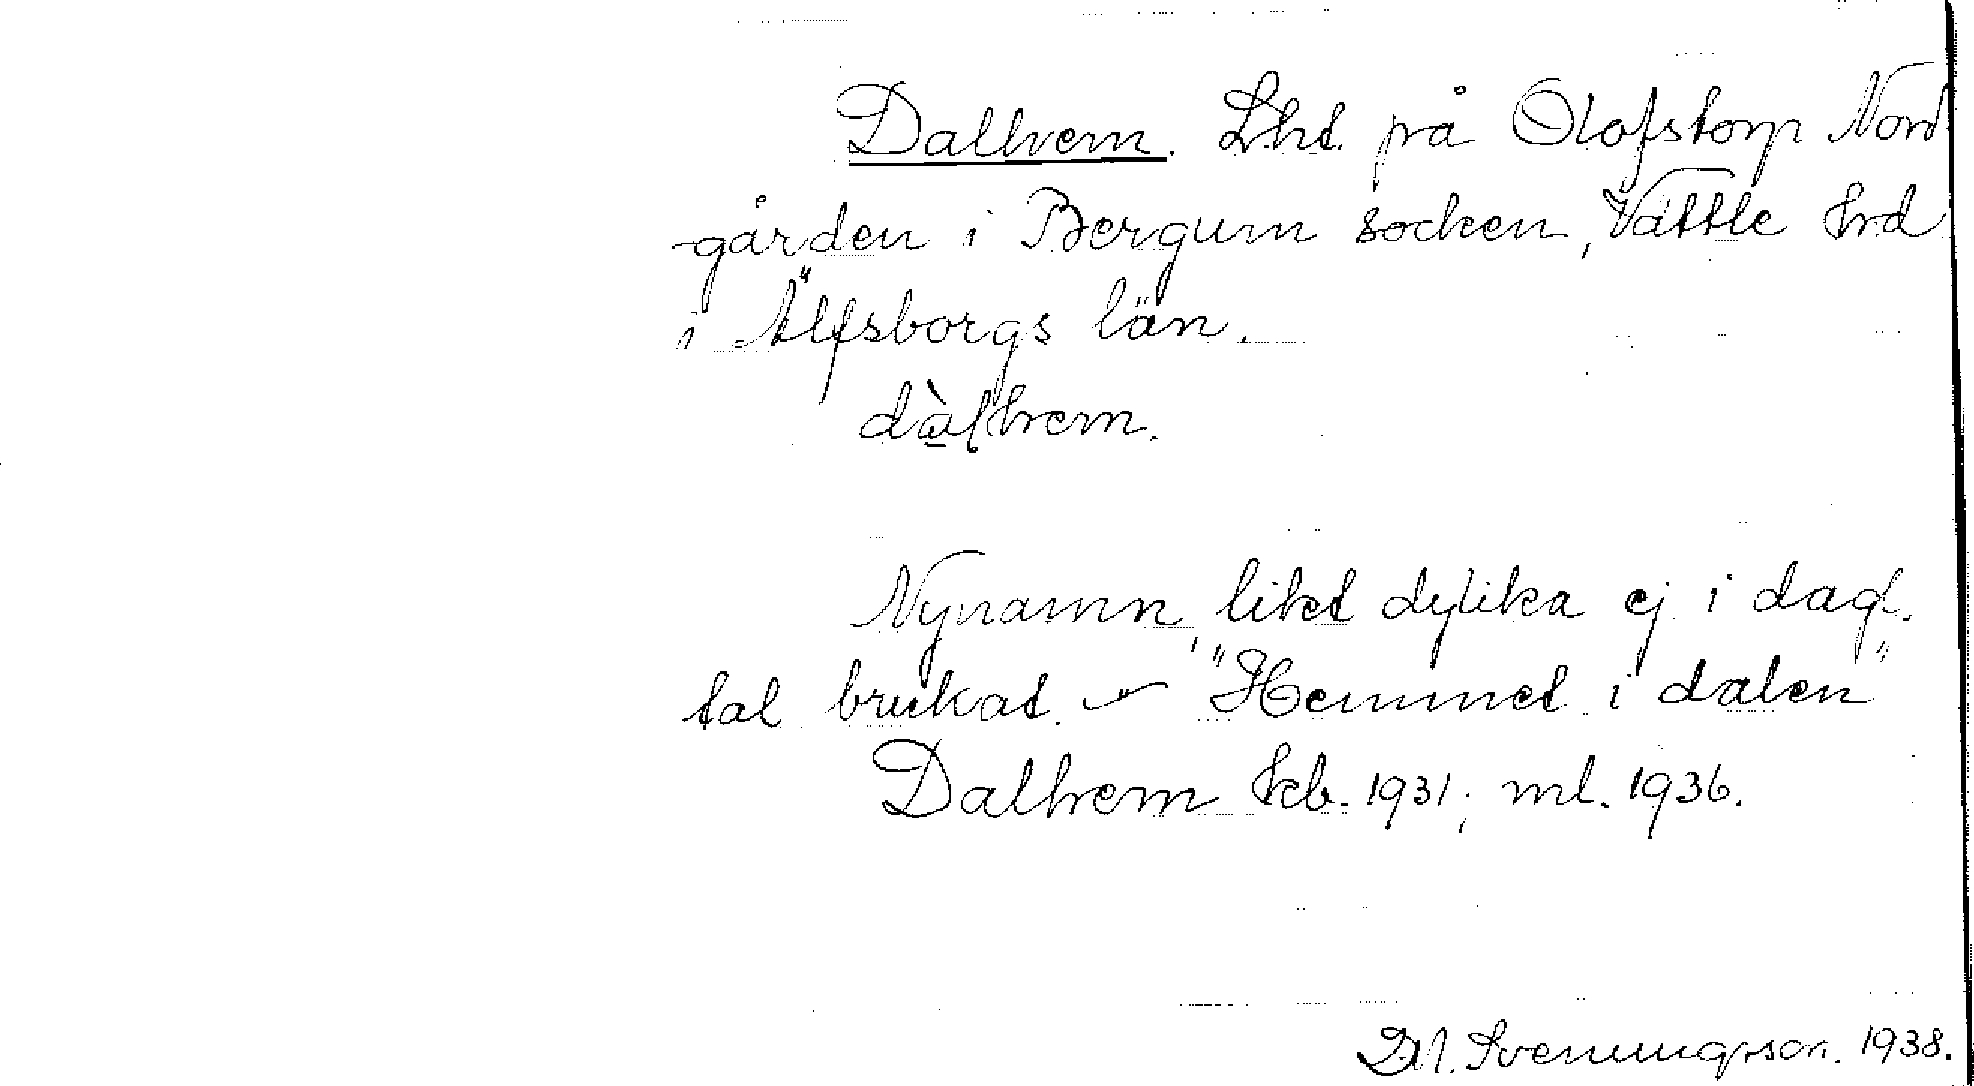 Dalhem. Lht. på Olofstorp Nord
gården i Bergum socken, Vättle hrd
i Älfsborgs län.
dàlhem.
Nynamn, likt dylika ej i dagl.
tal brukat. – "Hemmet i dalen"
Dalhem kb. 1931; ml. 1936.
Svenungsson. 1938.